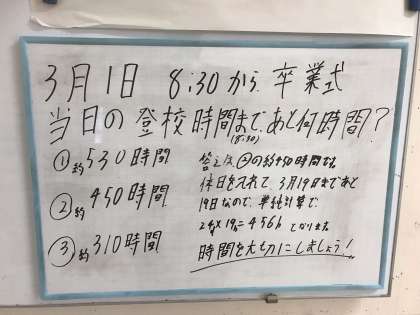 3月1日 8:30から 卒業式
当日の登校時間まで、あと何時間?
(8:30)
① 約530時間
② 約450時間
③ 約310時間
答えは②の約450時間です。
休日を入れて、3月19日まであと
19日なので、単純計算で
24h×19日=456h となります。
時間を大切にしましょう!